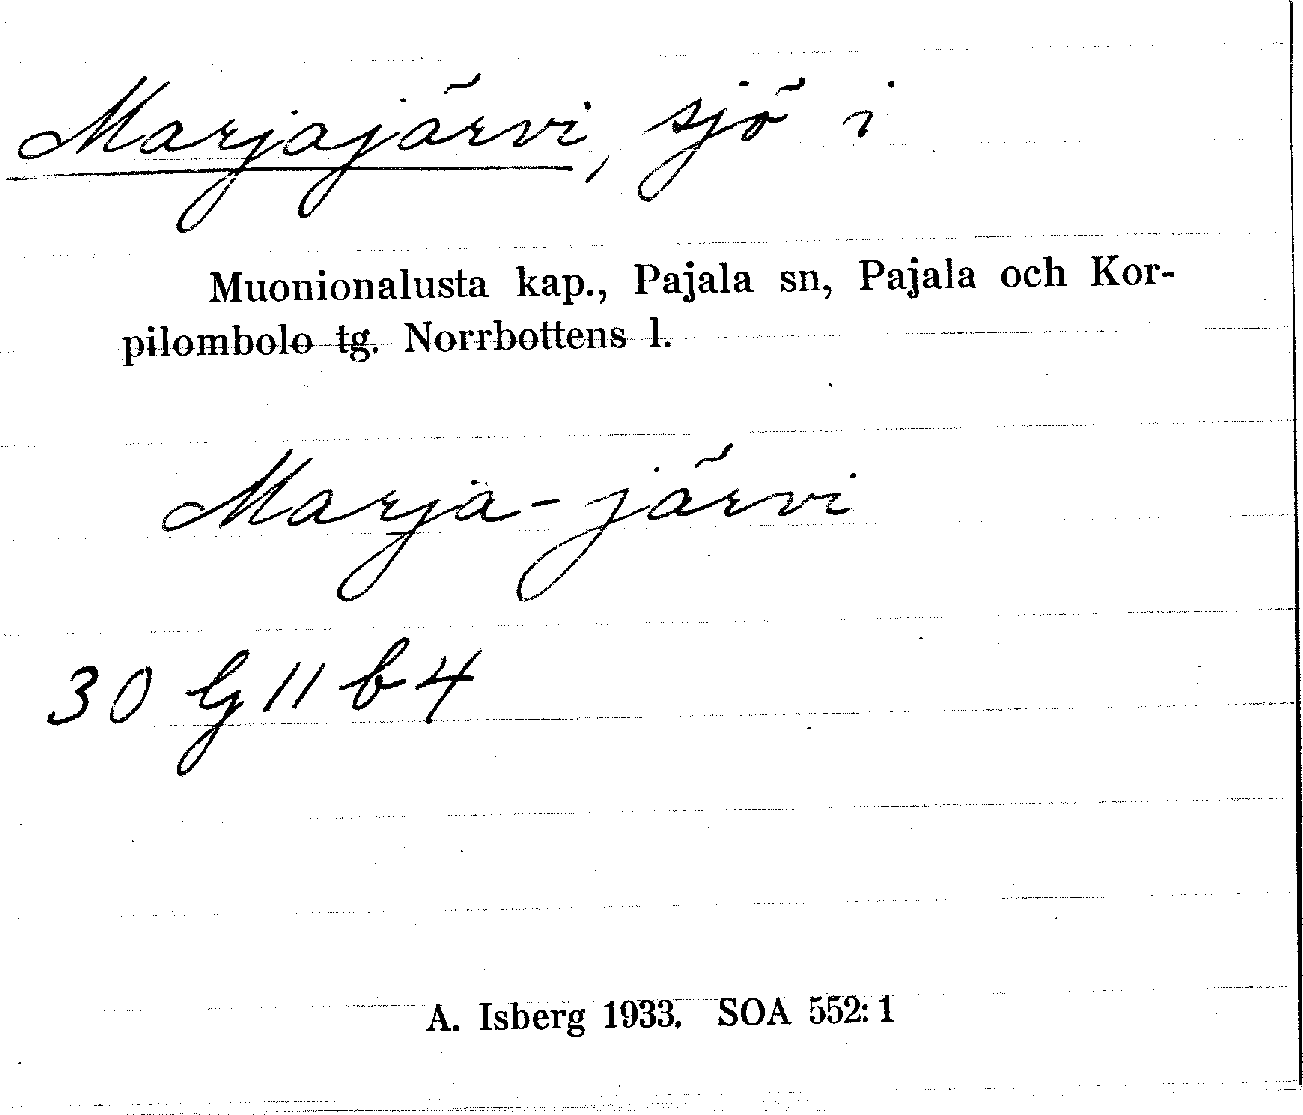 Marjajärvi, sjö i
Muonionalusta kap., Pajala sn, Pajala och Kor-
pilombolo tg. Norrbottens l.
Marja-järvi
30 G 11 b 4
A. Isberg 1933. SOA 552: 1